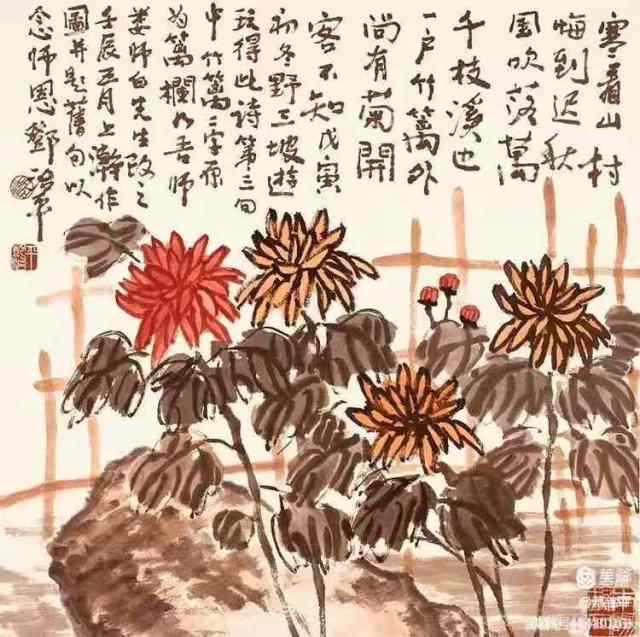 寒看山村
悔到迟秋
風吹落萬
千枝溪边
一户竹篱外
尚有菊開
客不知戊寅
初冬野三坡遊
玩得此诗第三句
中竹篱二字原
为篱欄乃吾师
娄师白先生改之
壬辰五月上瀚作
圖并题舊句以
念师恩鄧平
美篇